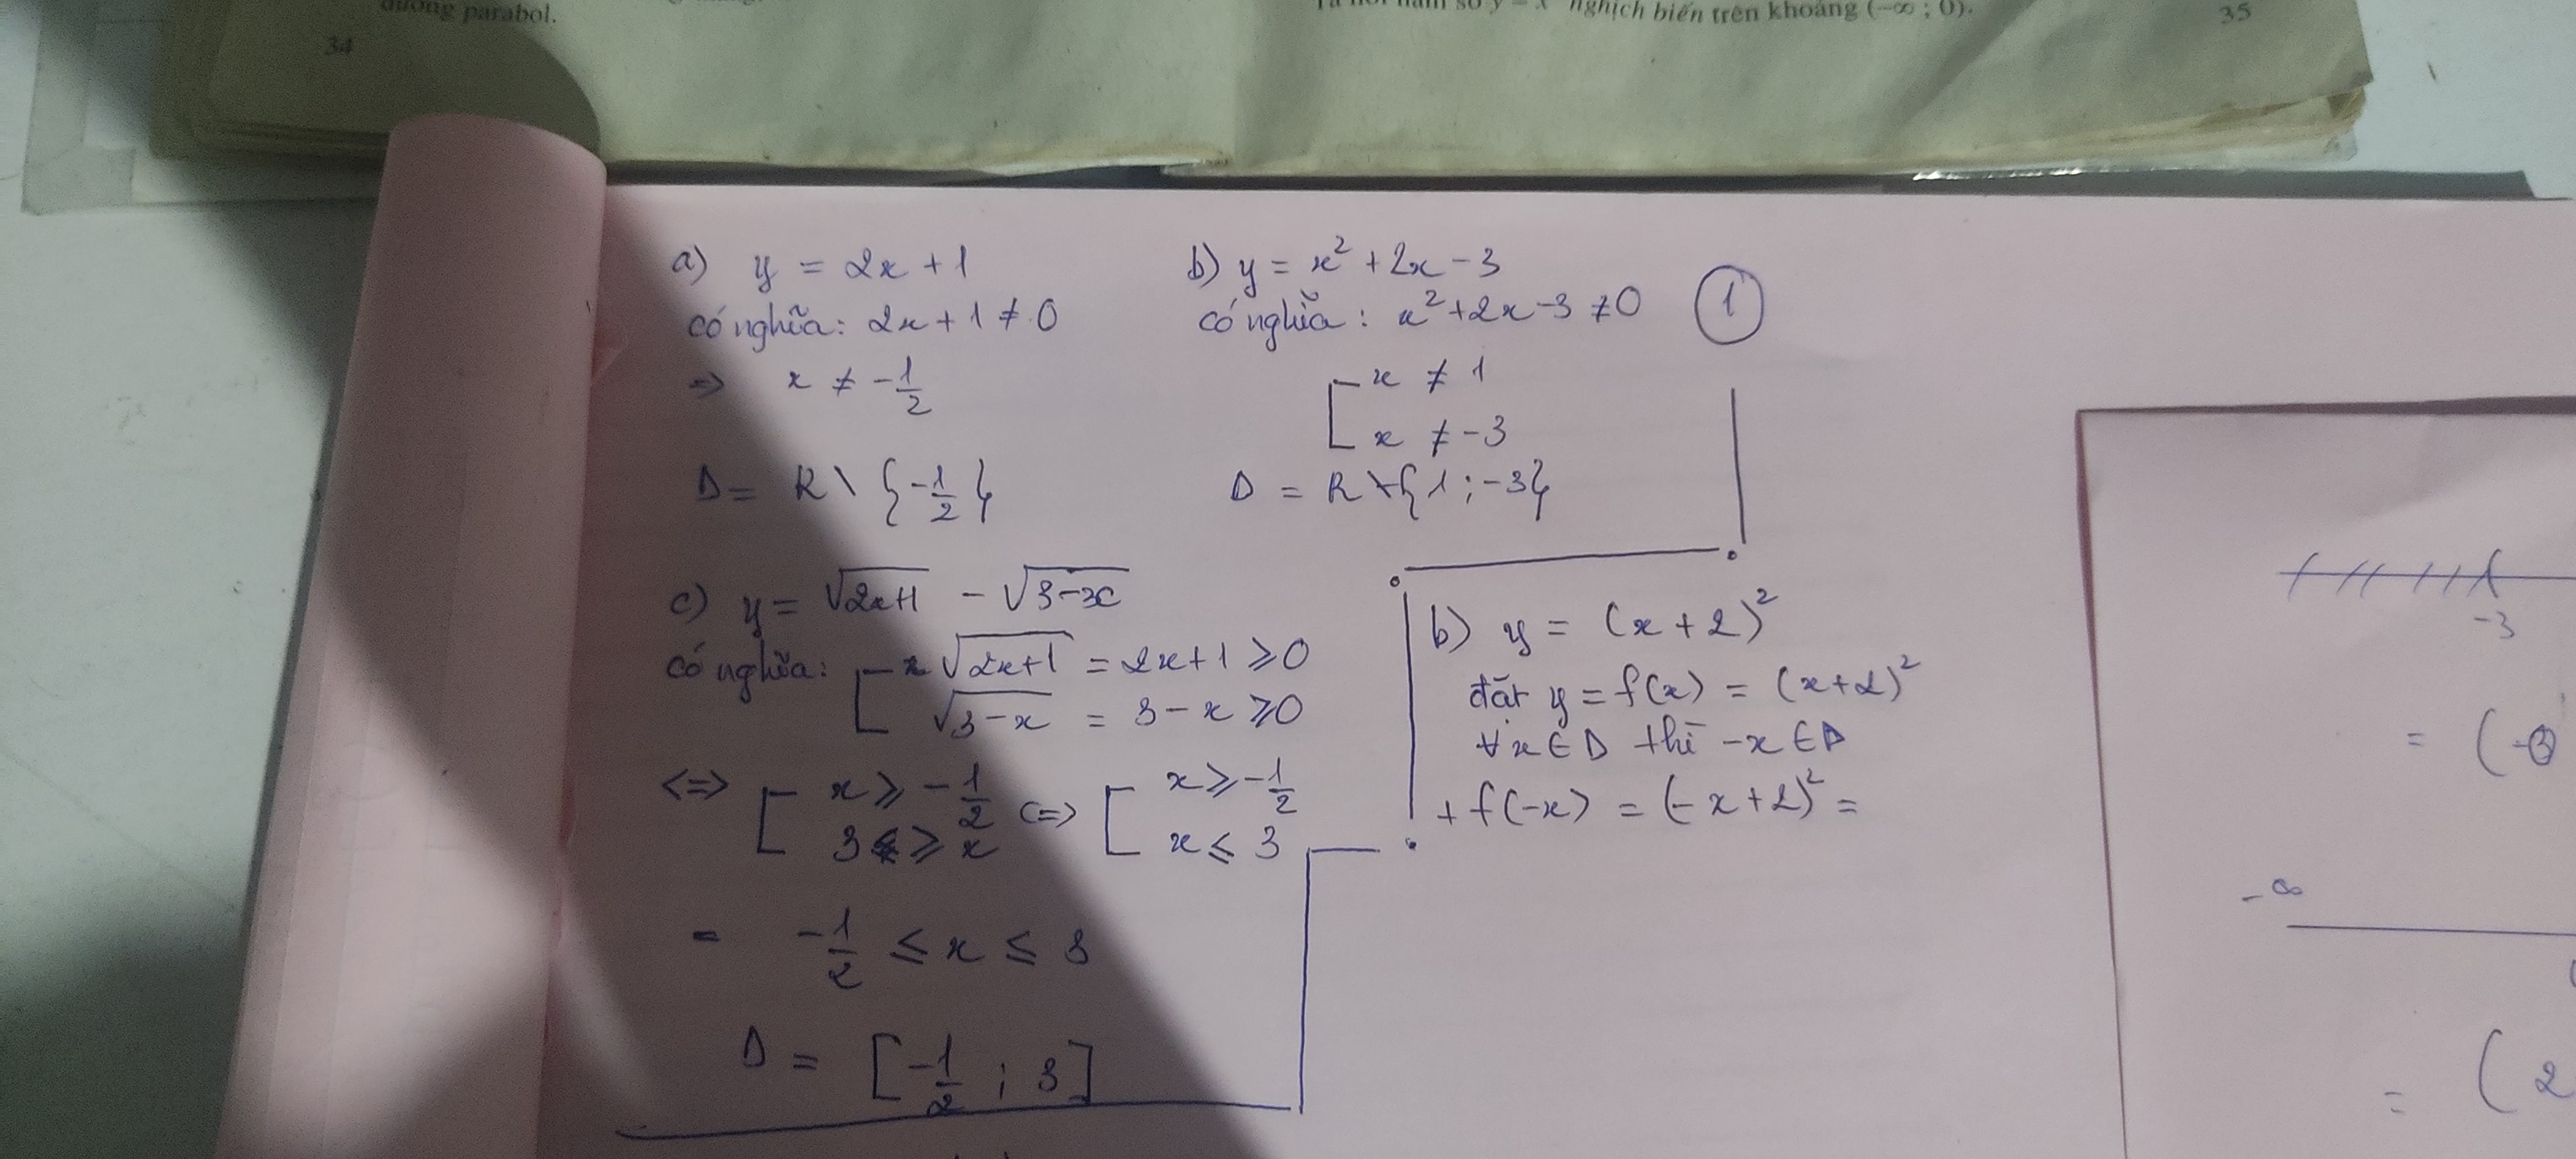 đường parabol.
34
nghịch biến trên khoảng (−∞ ; 0).
35
a) y = 2x + 1
có nghĩa: 2x + 1 ≠ 0
=> x ≠ -1/2
D = R \ {-1/2}
b) y = x² + 2x - 3
có nghĩa: x² + 2x - 3 ≠ 0
[ x ≠ 1
x ≠ -3
D = R \ {1 ; -3}
1
c) y = √(2x+1) - √(3-x)
có nghĩa: [ √(2x+1) = 2x + 1 ⩾ 0
√(3-x) = 3 - x ⩾ 0
<=> [ x ⩾ -1/2 <=> [ x ⩾ -1/2
3 ⩾ x x ⩽ 3
= -1/2 ⩽ x ⩽ 3
D = [-1/2 ; 3]
b) y = (x + 2)²
đặt y = f(x) = (x+2)²
∀x ∈ D thì -x ∈ D
+ f(-x) = (-x+2)² =
-3
= (-3
-∞
= (2